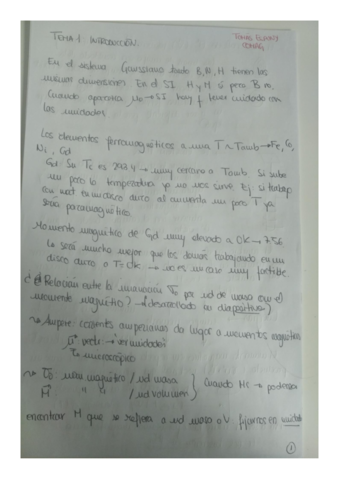 TEMA 1 INTRODUCCIÓN.
En el sistema Gaussiano tanto B, M, H tienen las
mismas dimensiones. En el SI H y M sí pero B no,
Cuando aparezca μ₀ → SI hay q tener cuidado con
las unidades
Los elementos ferromagnéticos a una T ~ Tamb → Fe, Co,
Ni, Gd
Gd Su Tc es 292,4 → muy cercano a Tamb. Si sube
un poco la temperatura ya no nos sirve Ej: si trabajo
con esto en un disco duro al aumentar un poco T ya
sería paramagnético.
Momento magnético de Gd muy elevado a 0K → 7'56
le sería mucho mejor que los demás trabajando en un
disco duro a T=0K → no es un caso muy factible
Relación entre la imanación por ud de masa con el
momento magnético? → (desarrollado en diapositivas)
→ Ampere: corrientes amperianas da lugar a momentos magnéticos
microscópico
mom magnético / ud masa
M " " / ud volumen
Cuando HC → podemos
encontrar M que se refiera a ud masa o V: fijarnos en unidades
1